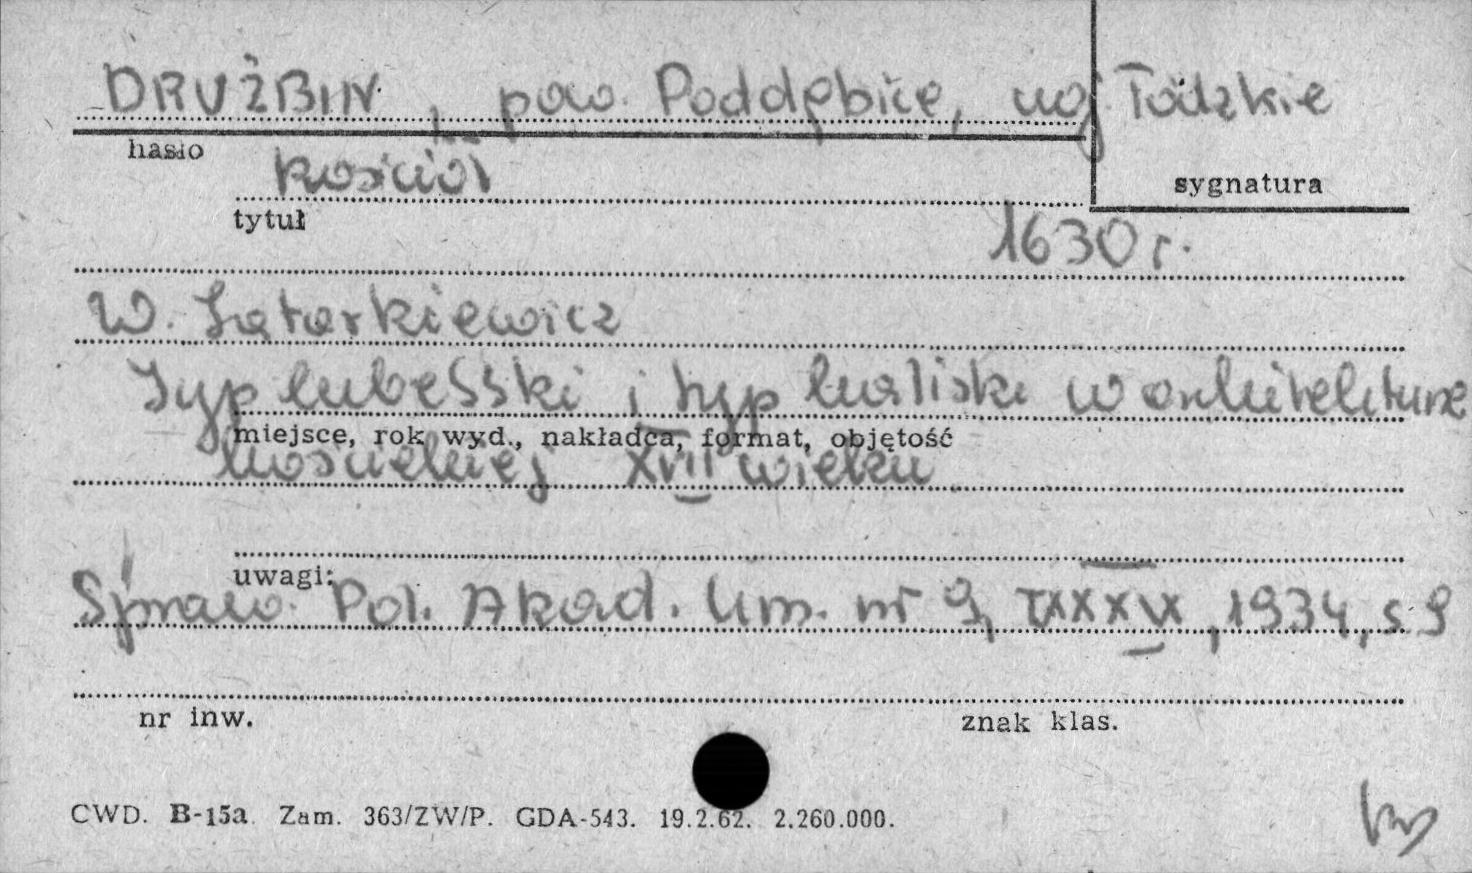 DRUŻBIN, pow. Poddębice, woj Łódzkie
hasło
kościół
sygnatura
tytuł
1630 r.
W. Tatarkiewicz
Typ lubelski i typ kaliski w architekturze
miejsce, rok wyd., nakładca, format, objętość
kościelnej XVII wieku.
uwagi:
Spraw. Pol. Akad. Um. nr 9, TXXXIX, 1934, s. 9
nr inw.
znak klas.
CWD. B-15a Zam. 363/ZW/P. GDA-543. 19.2.62. 2.260.000.